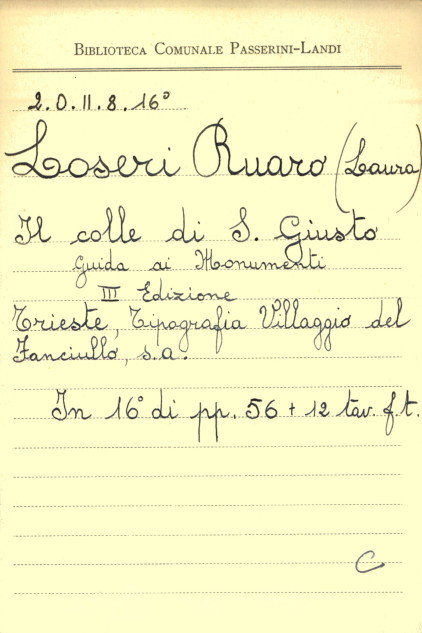 Biblioteca Comunale Passerini-Landi
2.O.II.8.16°
Loseri Ruaro (Laura)
Il colle di S. Giusto
Guida ai Monumenti
III Edizione
Trieste, Tipografia Villaggio del
Fanciullo, s.a.
In 16° di pp. 56 + 12 tav. f.t.
C